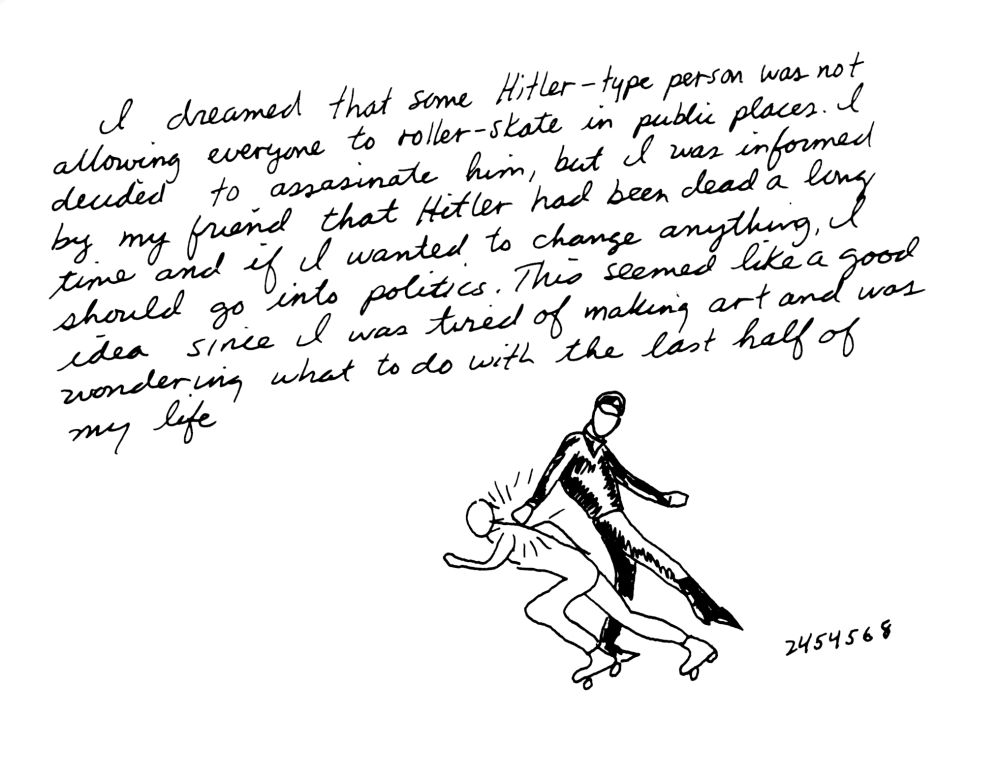 I dreamed that some Hitler-type person was not
allowing everyone to roller-skate in public places. I
decided to assasinate him, but I was informed
by my friend that Hitler had been dead a long
time and if I wanted to change anything, I
should go into politics. This seemed like a good
idea since I was tired of making art and was
wondering what to do with the last half of
my life
2454568